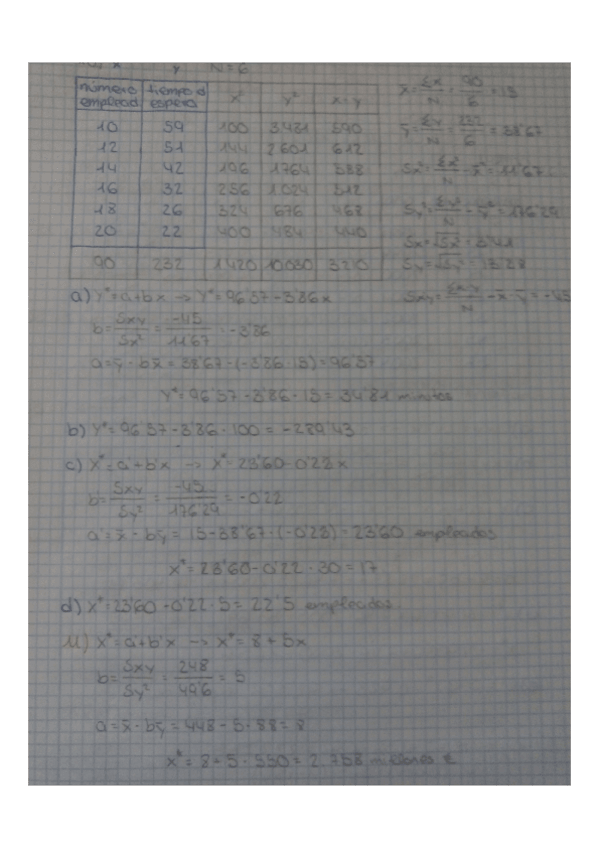 x y N = 6
número emplead. tiempo d espera x² y² x·y
10 59 100 3481 590
12 51 144 2601 612
14 42 196 1764 588
16 32 256 1024 512
18 26 324 676 468
20 22 400 484 440
90 232 1420 10030 3210
x̄ = Σx/N = 90/6 = 15
ȳ = Σy/N = 232/6 = 38'67
Sx² = Σx²/N - x̄² = 11'67
Sy² = Σy²/N - ȳ² = 176'29
Sx = √Sx² = 3'41
Sy = √Sy² = 13'28
Sxy = Σx·y/N - x̄·ȳ = -45
a) Y* = a + bx → Y* = 96'57 - 3'86x
b = Sxy/Sx² = -45/11'67 = -3'86
a = ȳ - bx̄ = 38'67 - (-3'86 · 15) = 96'57
Y* = 96'57 - 3'86 · 15 = 34'81 minutos
b) Y* = 96'57 - 3'86 · 100 = -289'43
c) X* = a' + b'x → X* = 23'60 - 0'22x
b = Sxy/Sy² = -45/176'29 = -0'22
a' = x̄ - bȳ = 15 - 38'67 · (-0'22) = 23'60 empleados
x* = 23'60 - 0'22 · 30 = 17
d) X* = 23'60 - 0'22 · 5 = 22'5 empleados
11) X* = a' + b'x → X* = 8 + 5x
b = Sxy/Sy² = 248/49'6 = 5
a = x̄ - bȳ = 448 - 5 · 88 = 8
x* = 8 + 5 · 550 = 2.758 millones €